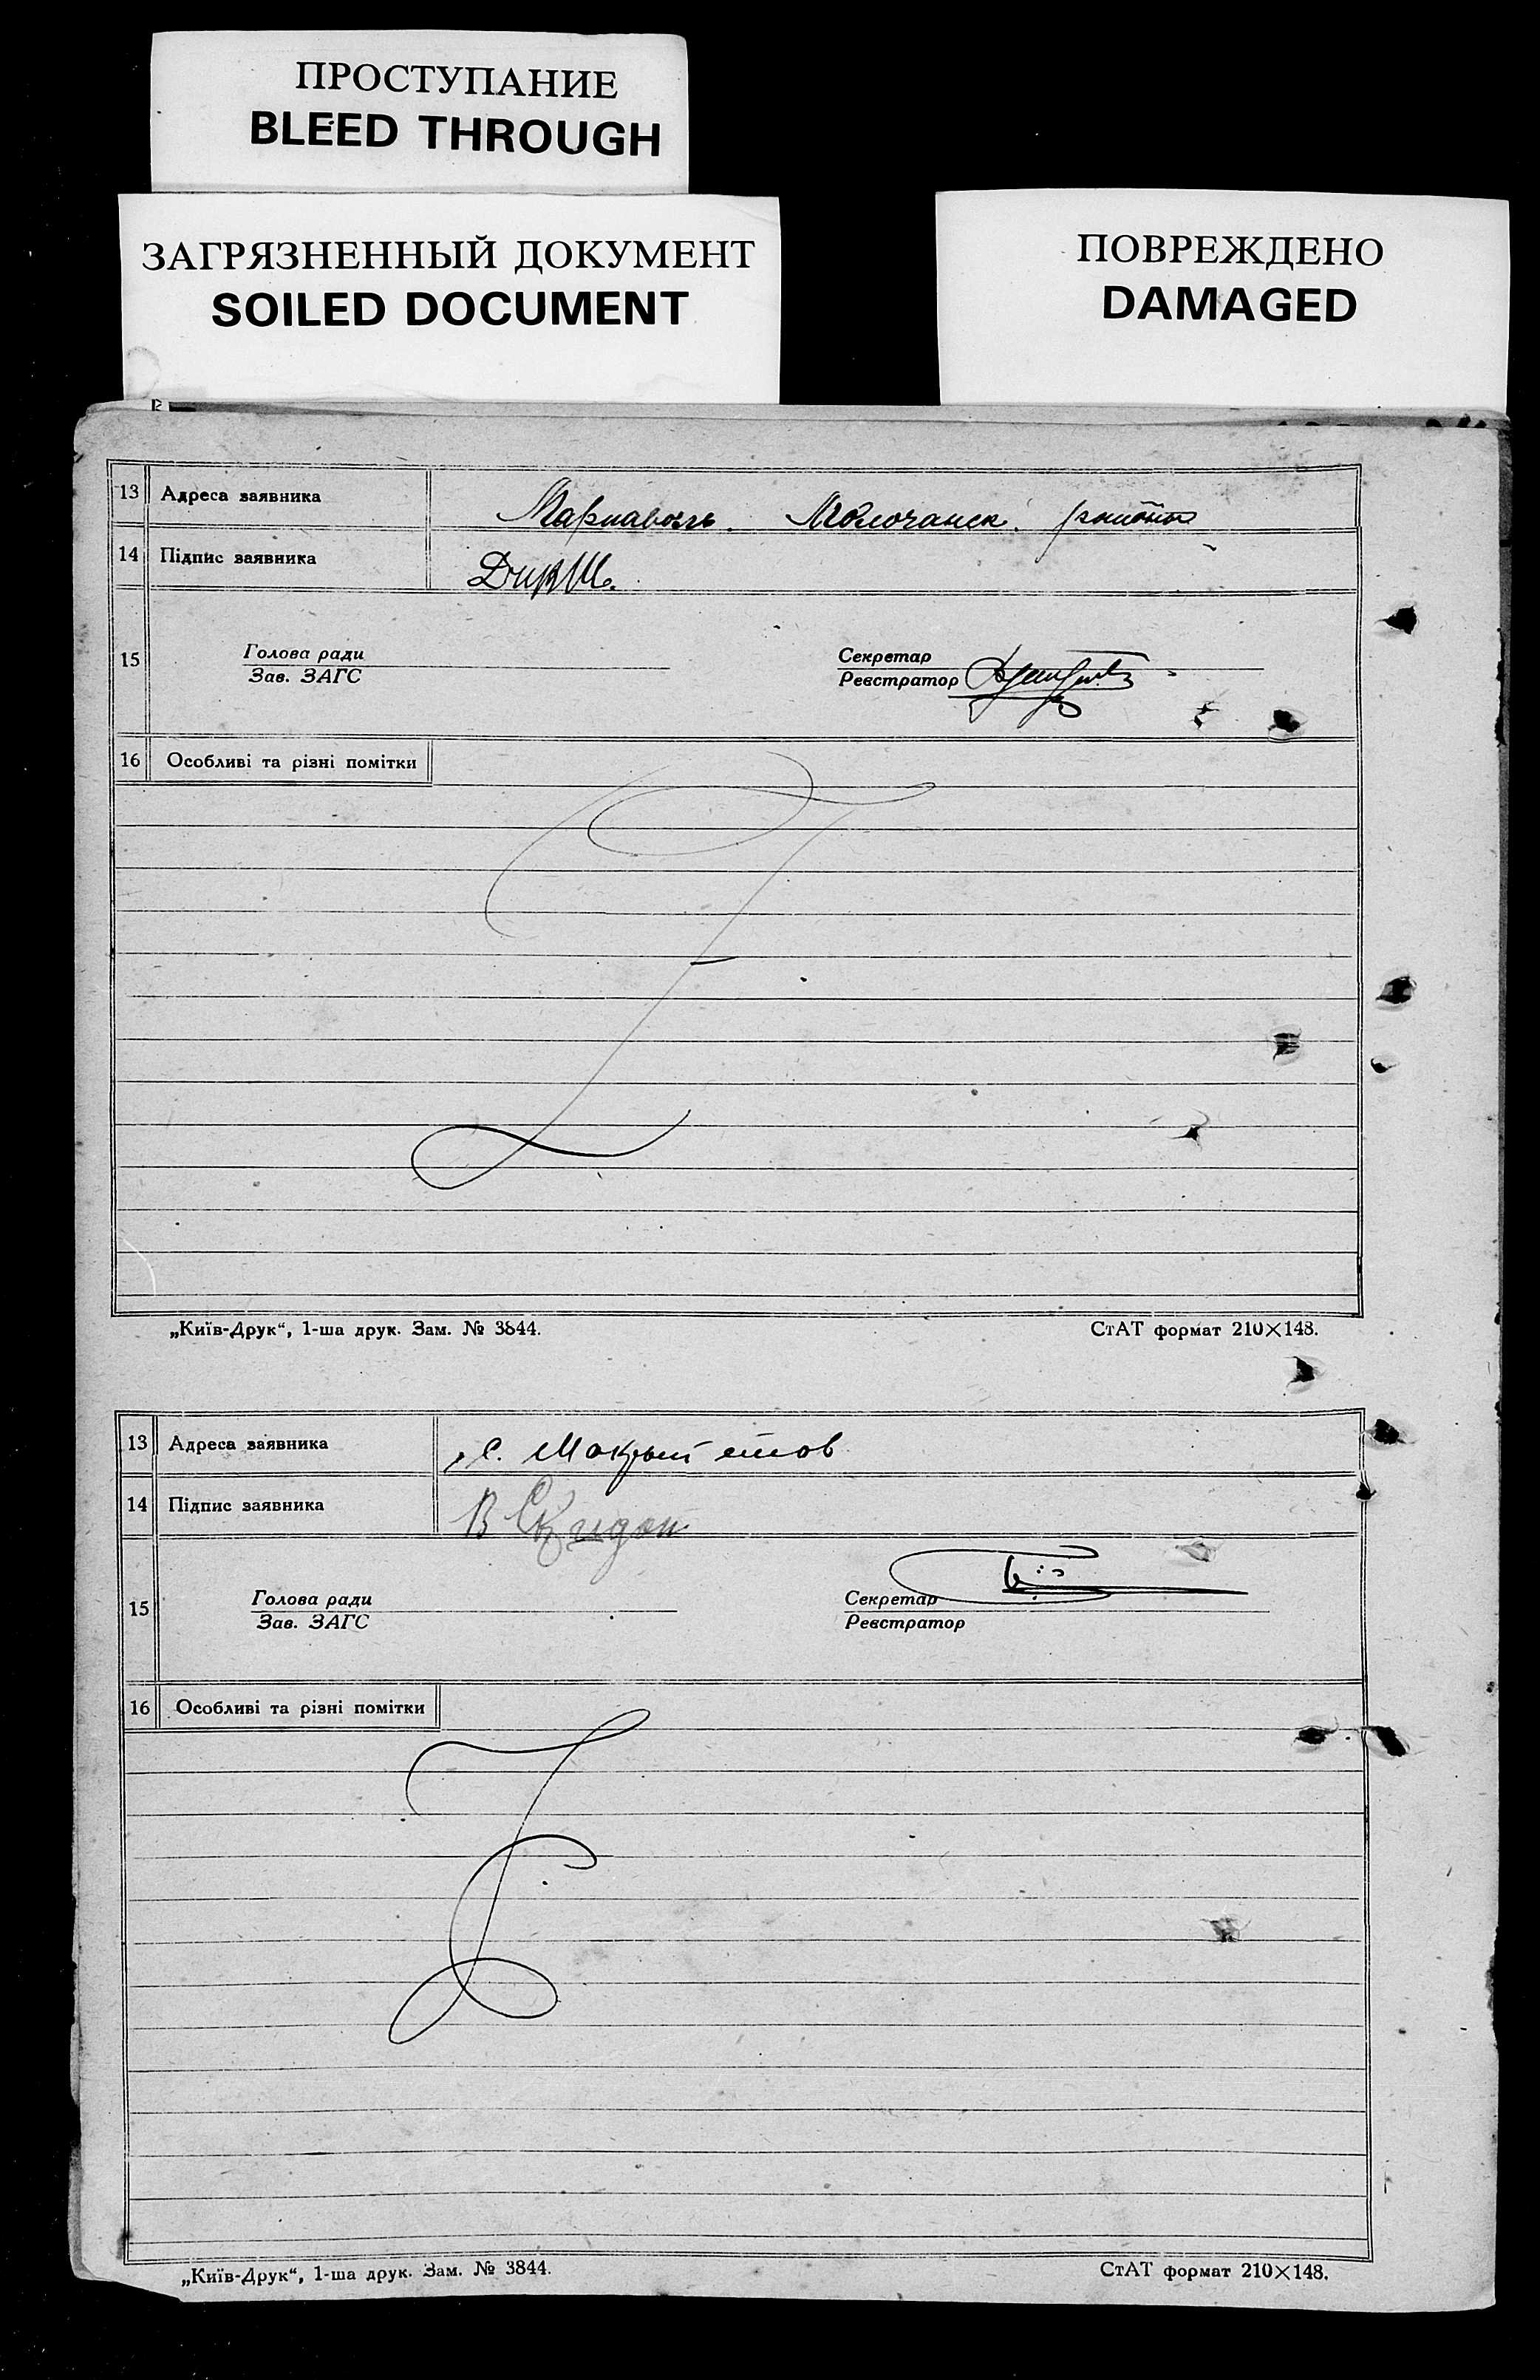 ПРОСТУПАНИЕ
BLEED THROUGH
ЗАГРЯЗНЕННЫЙ ДОКУМЕНТ
SOILED DOCUMENT
ПОВРЕЖДЕНО
DAMAGED
13 Адреса заявника Молочанск.
14 Підпис заявника Дик Ш.
15 Голова ради Секретар
Зав. ЗАГС Реєстратор
16 Особливі та різні помітки
„Київ-Друк“, 1-ша друк. Зам. № 3844. СтАТ формат 210×148.
13 Адреса заявника с. Мокрый
14 Підпис заявника В
15 Голова ради Секретар
Зав. ЗАГС Реєстратор
16 Особливі та різні помітки
„Київ-Друк“, 1-ша друк. Зам. № 3844. СтАТ формат 210×148.